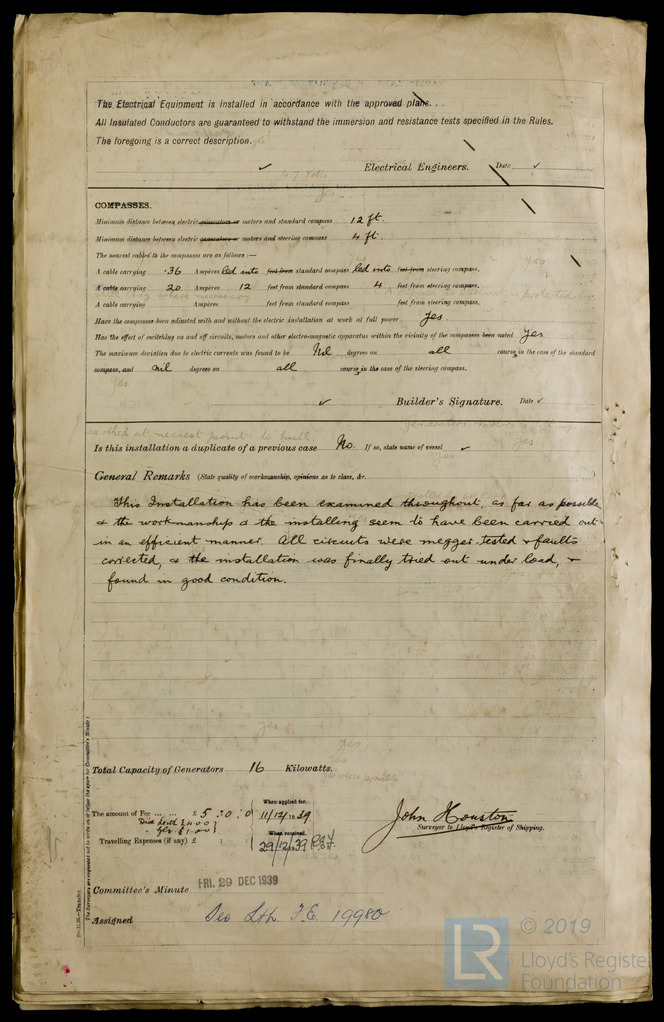 The Electrical Equipment is installed in accordance with the approved plans. . .
All Insulated Conductors are guaranteed to withstand the immersion and resistance tests specified in the Rules.
The foregoing is a correct description.
✓ Electrical Engineers. Date ✓
COMPASSES.
Minimum distance between electric generators or motors and standard compass 12 ft.
Minimum distance between electric generators or motors and steering compass 4 ft.
The nearest cables to the compasses are as follows:—
A cable carrying .36 Ampères led into feet from standard compass led into feet from steering compass.
A cable carrying 20 Ampères 12 feet from standard compass 4 feet from steering compass.
A cable carrying Ampères feet from standard compass feet from steering compass.
Have the compasses been adjusted with and without the electric installation at work at full power Yes
Has the effect of switching on and off circuits, motors and other electro-magnetic apparatus within the vicinity of the compasses been noted Yes
The maximum deviation due to electric currents was found to be Nil degrees on all courses in the case of the standard
compass, and nil degrees on all courses in the case of the steering compass.
✓ Builder's Signature. Date ✓
Is this installation a duplicate of a previous case No. If so, state name of vessel ✓
General Remarks (State quality of workmanship, opinions as to class, &c.)
This Installation has been examined throughout, as far as possible
& the workmanship & the installing seem to have been carried out
in an efficient manner. All circuits were megger tested & faults
corrected, & the installation was finally tried out under load, &
found in good condition.
Total Capacity of Generators 16 Kilowatts.
The amount of Fee ... ... £ 5 : 0 : 0
When applied for, 11/12/39
Travelling Expenses (if any) £ : :
When received, 29/12/39
John Houston
Surveyor to Lloyd's Register of Shipping.
Committee's Minute FRI. 29 DEC 1939
Assigned See Lth. F.E. 19980
The Surveyors are requested not to write on or below the space for Committee's Minute
LR
© 2019
Lloyd's Register
Foundation